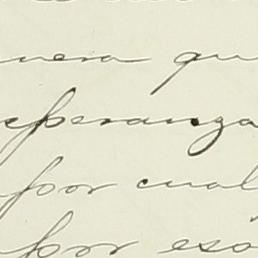 nera qu
speranza
por cual
por eso